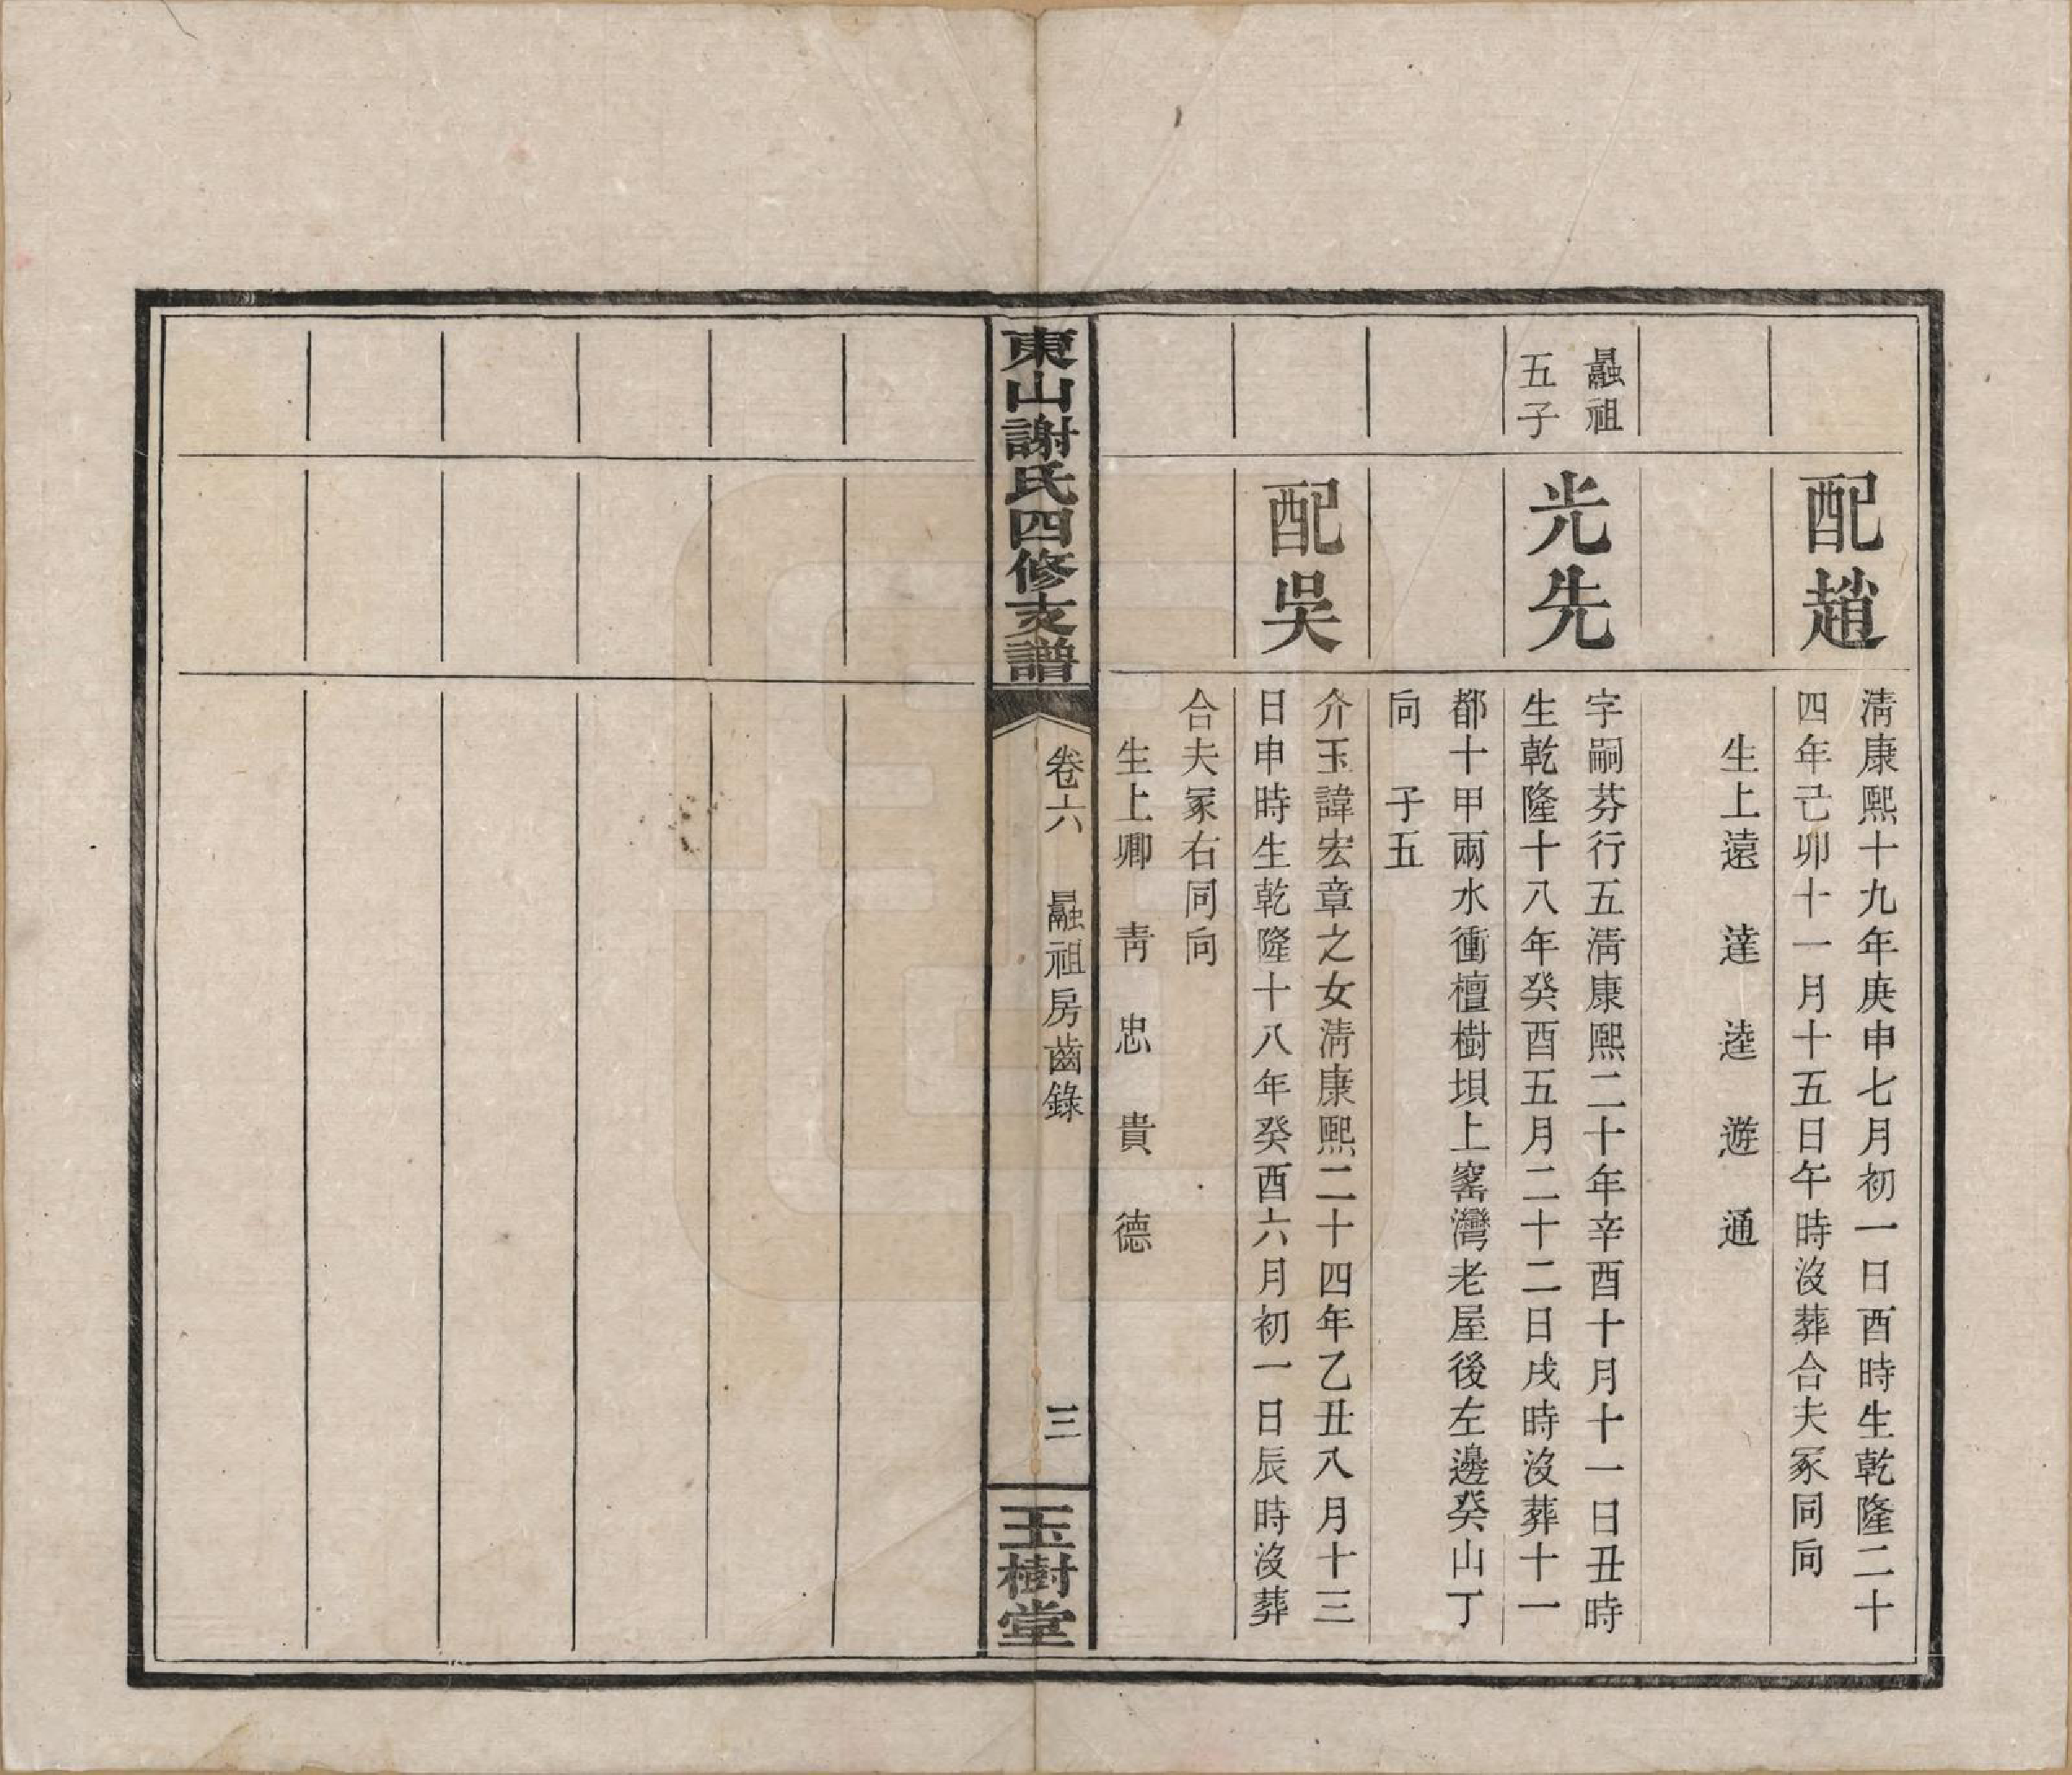 配趙
清康熙十九年庚申七月初一日酉時生乾隆二十
四年己卯十一月十五日午時沒葬合夫冢同向
生上遠　達　逵　遊　通
朂祖
五子
光先
字嗣芬行五清康熙二十年辛酉十月十一日丑時
生乾隆十八年癸酉五月二十二日戌時沒葬十一
都十甲兩水衝檀樹垻上窰灣老屋後左邊癸山丁
向　子五
配吳
介玉諱宏章之女清康熙二十四年乙丑八月十三
日申時生乾隆十八年癸酉六月初一日辰時沒葬
合夫冢右同向
生上卿　靑　忠　貴　德
東山謝氏四修支譜
卷六　祖房齒錄
三
玉樹堂